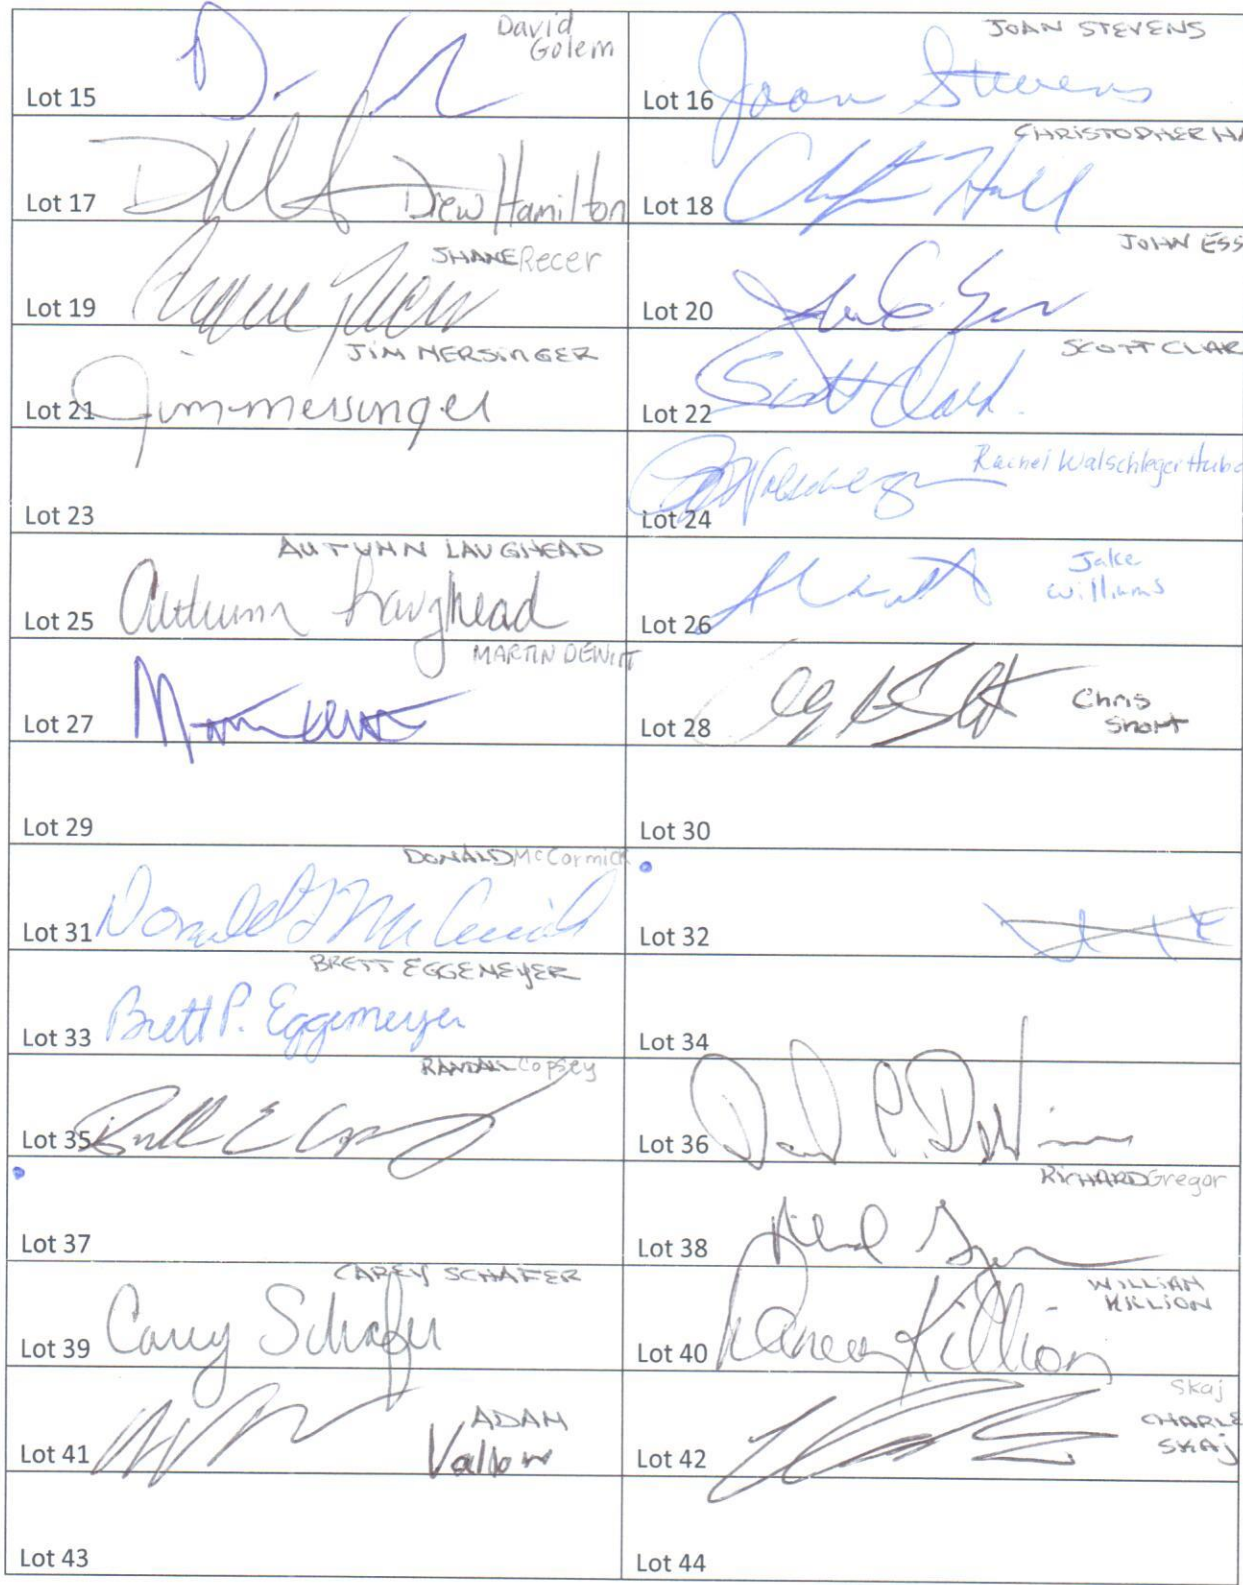 David
Golem
Lot 15
JOAN STEVENS
Joan Stevens
Lot 16
Drew Hamilton
Lot 17
CHRISTOPHER HA
Hall
Lot 18
SHANE Recer
Lot 19
JOHN ESS
Lot 20
JIM MERSINGER
Jim mersinger
Lot 21
SCOTT CLAR
Scott Clark
Lot 22
Lot 23
Rachel Walschleger Hubc
Lot 24
AUTUMN LAUGHEAD
Autumn Laughead
Lot 25
Jake
Williams
Lot 26
MARTIN DEWITT
Lot 27
Chris
Short
Lot 28
Lot 29
Lot 30
DONALD McCormick
Donald McCormick
Lot 31
Lot 32
BRETT EGGEMEYER
Brett P. Eggemeyer
Lot 33
Lot 34
RANDALL Copsey
Lot 35
Lot 36
Lot 37
RICHARD Gregor
Lot 38
CAREY SCHAFER
Carey Schafer
Lot 39
WILLIAM
KILLION
Killion
Lot 40
ADAM
Vallow
Lot 41
Skaj
CHARLE
SKAj
Lot 42
Lot 43
Lot 44